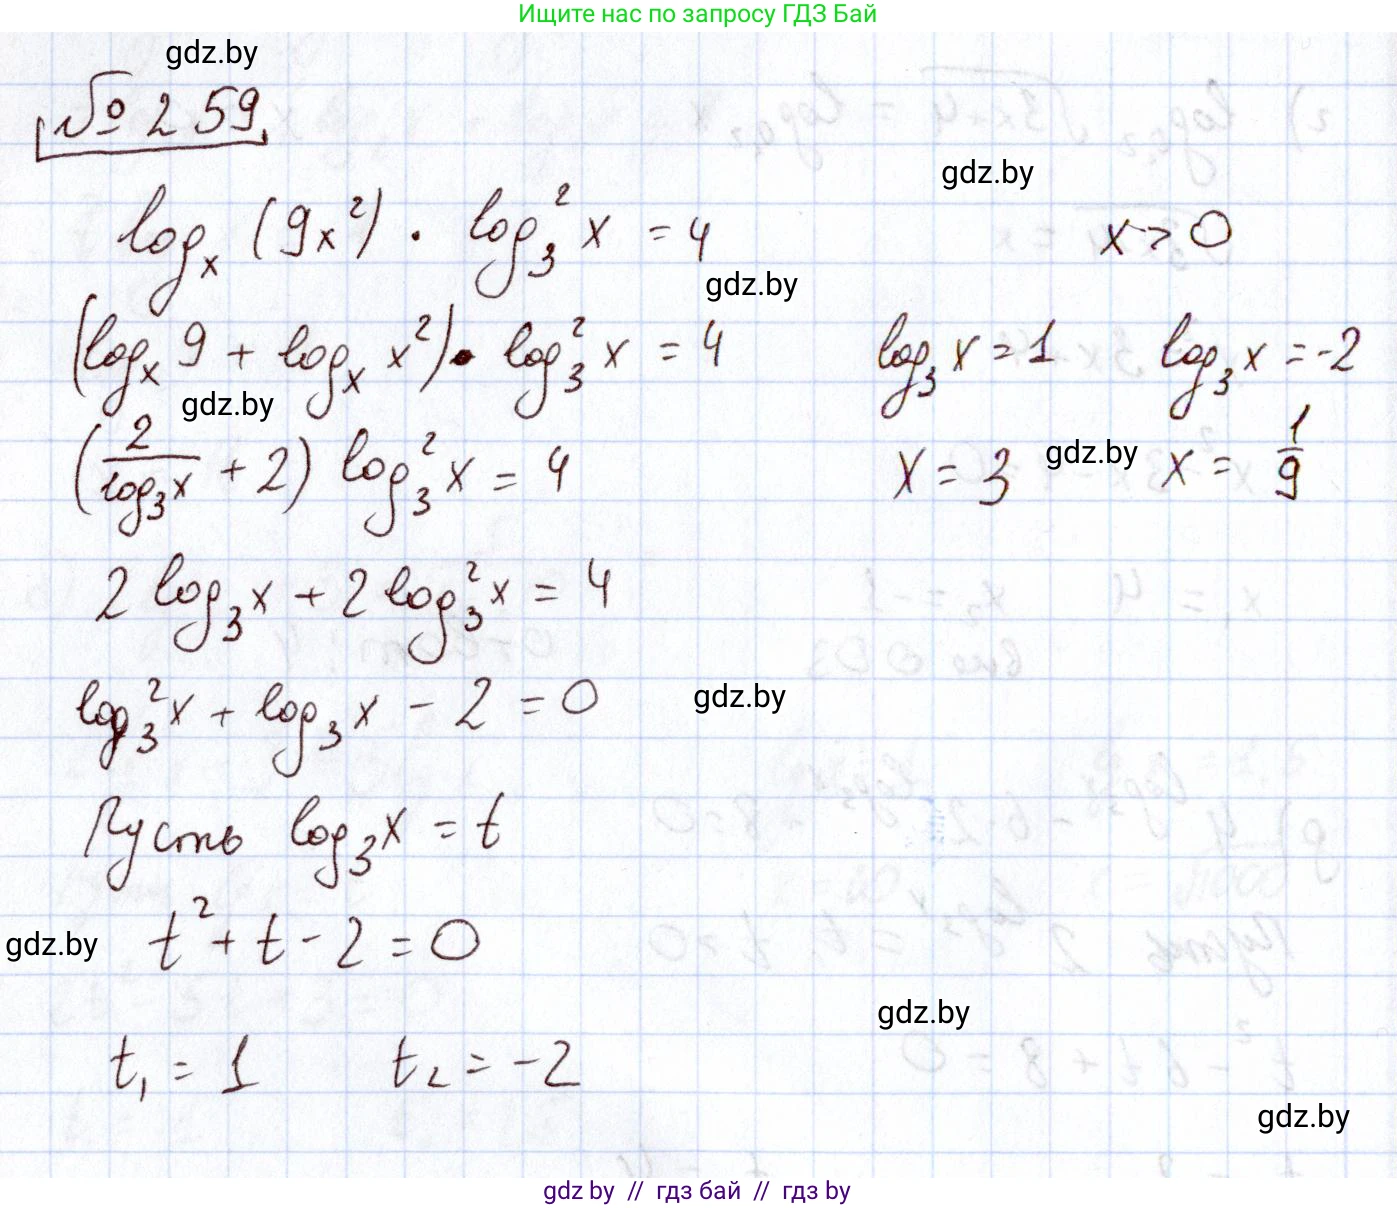 Ищите нас по запросу ГДЗ Бай
gdz.by
№ 259
gdz.by
logₓ (9x²) · log₃² x = 4
x > 0
gdz.by
(logₓ 9 + logₓ x²) · log₃² x = 4
log₃ x = 1 log₃ x = -2
gdz.by
(2/log₃x + 2) log₃² x = 4
x = 3 gdz.by x = 1/9
2 log₃ x + 2 log₃² x = 4
log₃² x + log₃ x - 2 = 0
gdz.by
Пусть log₃ x = t
gdz.by t² + t - 2 = 0
gdz.by
t₁ = 1 t₂ = -2
gdz.by
gdz by // гдз бай // гдз by